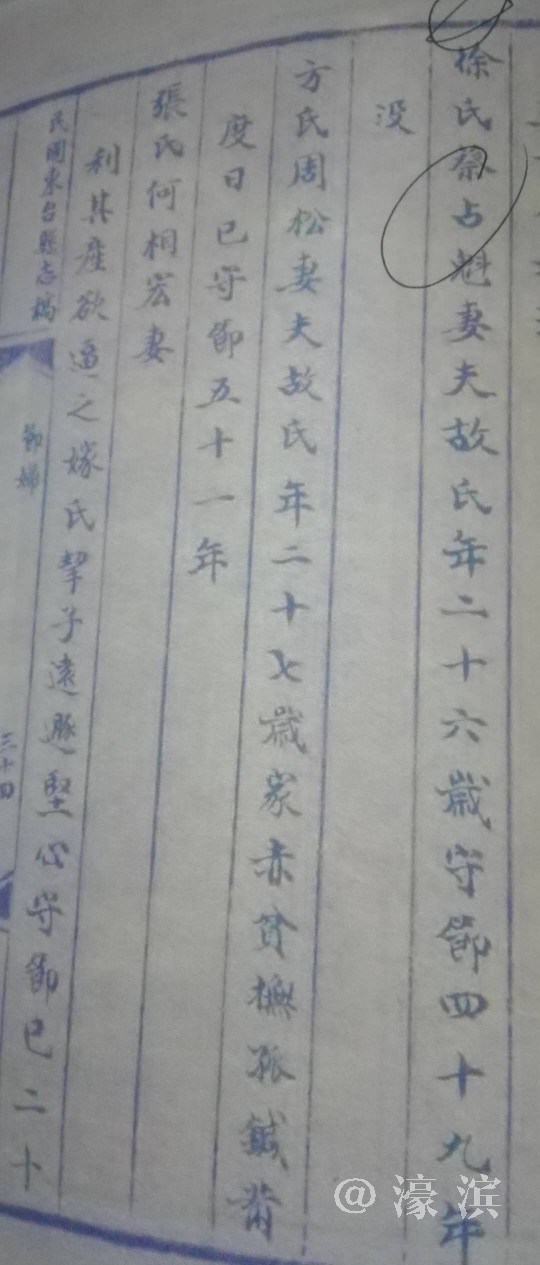 徐氏蔡占魁妻夫故氏年二十六歲守節四十九年
没
方氏周松妻夫故氏年二十七歲家赤貧撫孤鍼黹
度日已守節五十一年
張氏何相宏妻
利其產欲逼之嫁氏挈子遠遯堅心守節已二十
民國東台縣志稿
節婦
三十四
@濠滨